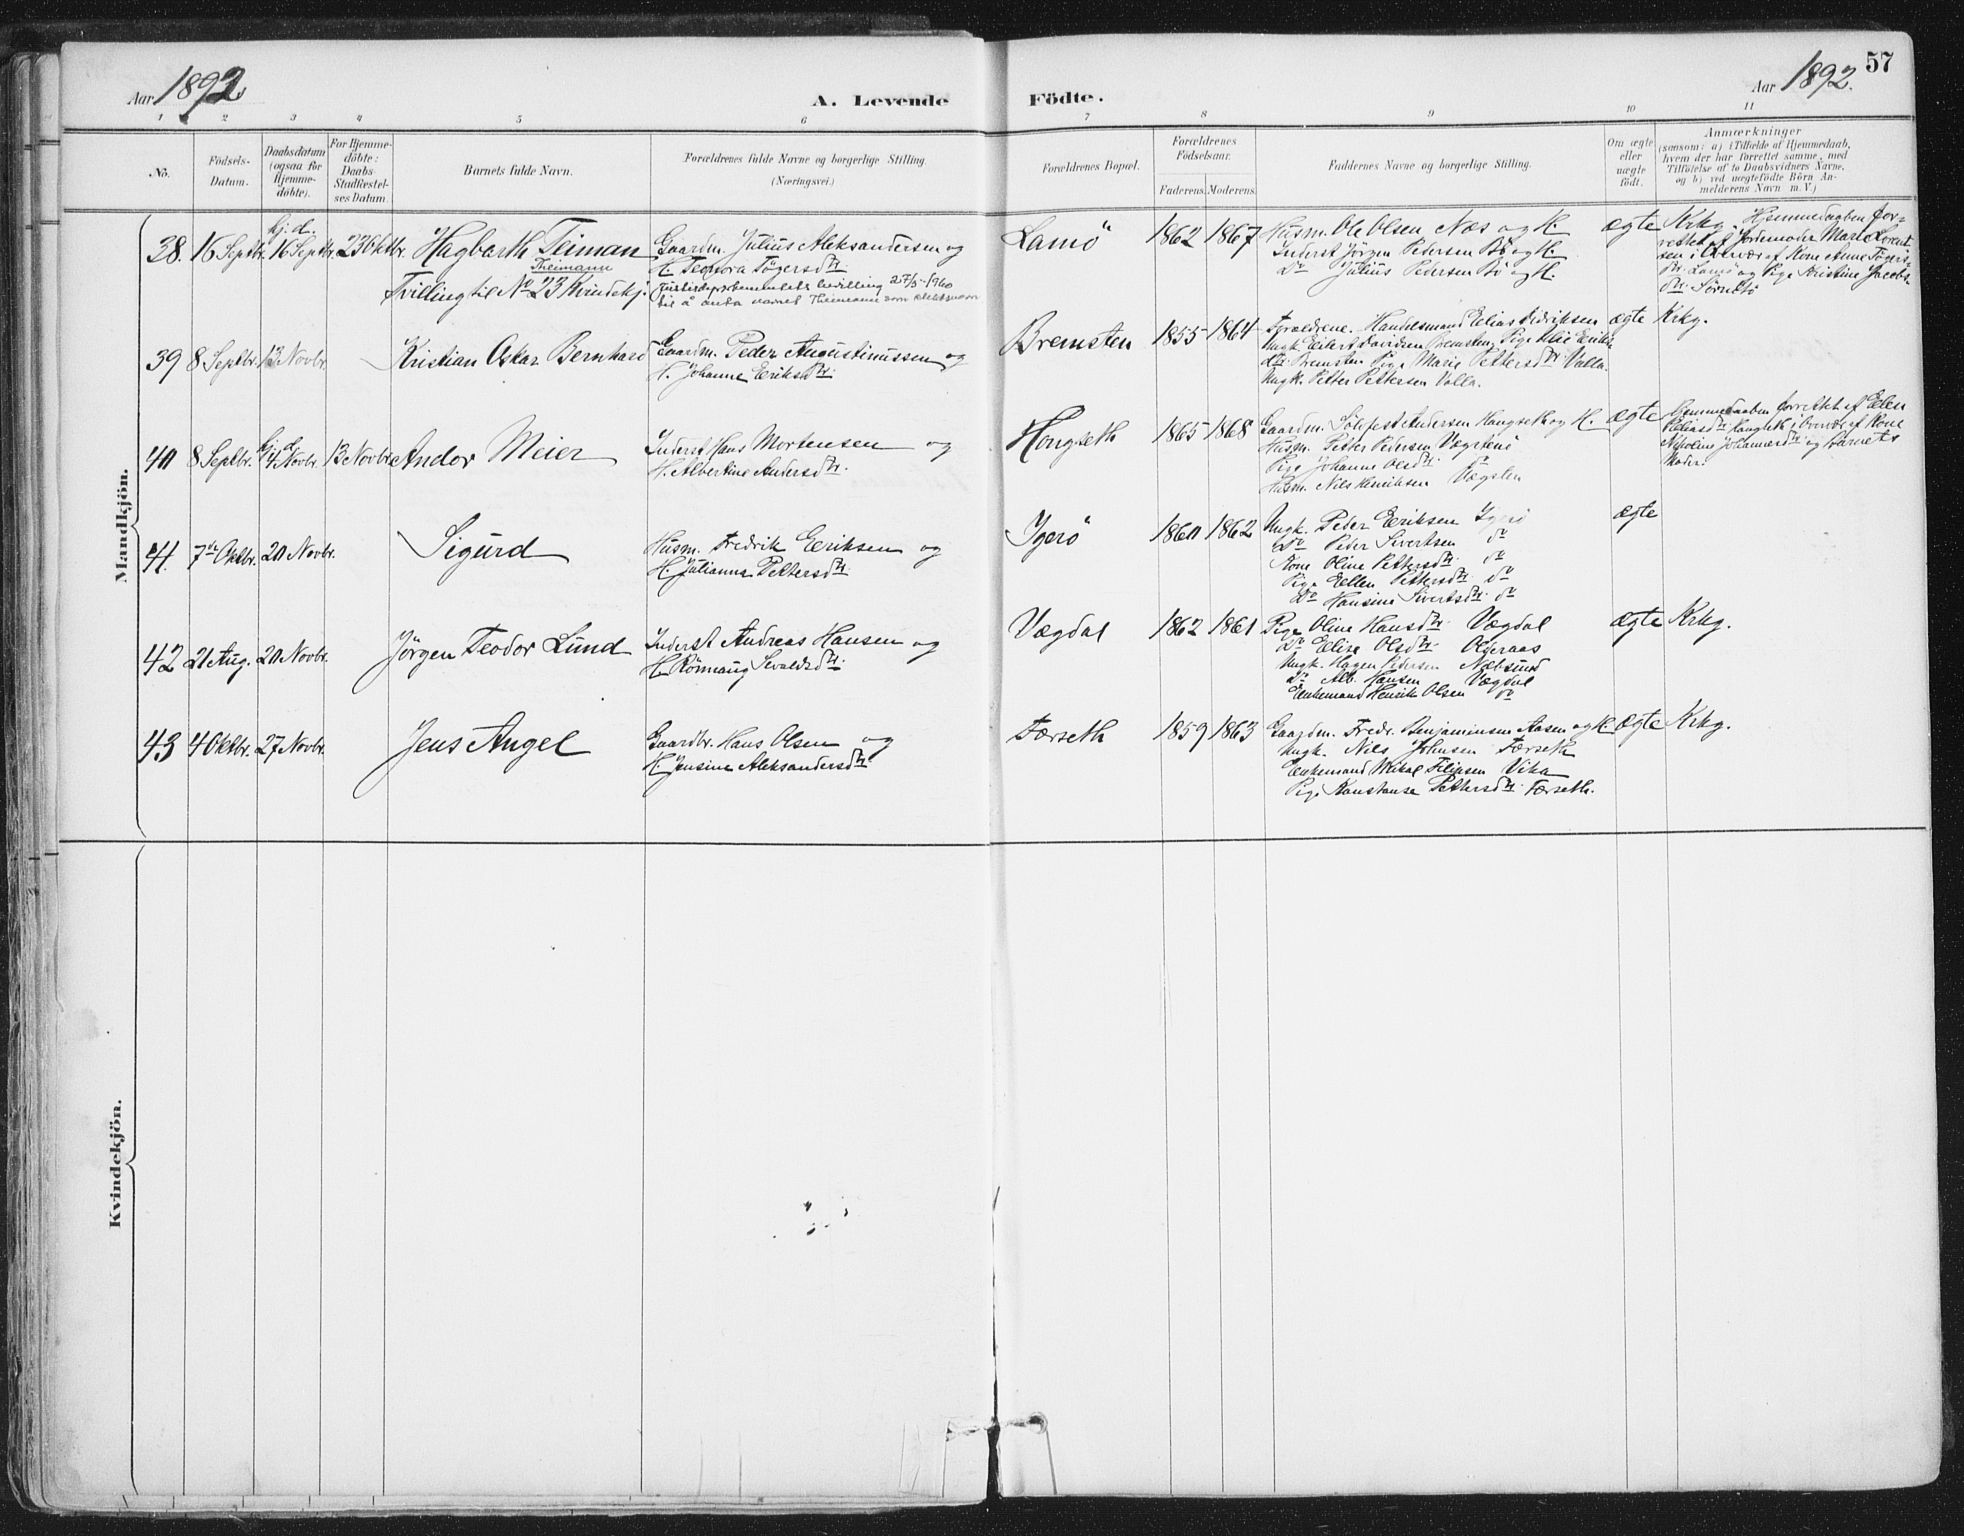 Aar 1892
A. Levende Födte.
Aar 1892.
57
1 2 3 4 5 6 7 8 9 10 11
No.
Födsels-
Datum.
Daabsdatum
(ogsaa for
Hjemme-
döbte).
For Hjemme-
döbte:
Daabs-
Stadfæstel-
ses Datum.
Barnets fulde Navn.
Forældrenes fulde Navne og borgerlige Stilling.
(Næringsvei.)
Forældrenes Bopæl.
Forældrenes
Födselsaar.
Faderens. Moderens.
Faddernes Navne og borgerlige Stilling.
Om ægte
eller
uægte
födt.
Anmærkninger
(saasom: a) i Tilfælde af Hjemmedaab,
hvem der har forrettet samme, med
Tilföielse af to Daabsvidners Navne,
og b) ved uægtefödte Börn An-
melderens Navn m. V.)
Mandkjön.
38. 16 Septbr. hj. d. 16 Septbr. 23 Oktbr. Hagbarth Teiman
Theimann
Tvilling til No 23 Kvindekj.
Gaardm. Julius Aleksandersen og
H. Teodora Tögersdtr.
Justisdepartementets bevilling 27/5-1960
til å anta navnet Theimann som slektsnavn
Lamö 1862 1867
Husm. Ole Olsen Næs og H.
Inderst Jörgen Pedersen Bö og H.
Do Julius Pedersen Bö og H.
ægte
Krkg. Hjemmedaaben for-
rettet af Jordemoder Marie Lorent-
sen i Overvær af Kone Anne Tögers-
dtr. Lamö og Pige Kristine Jacobs-
dtr.
39 8 Septbr. 13 Novbr. Kristian Oskar Bernhard
Gaardm. Peder Augustinussen og
H. Johanne Eriksdtr.
Bremsten 1855 1864
Forældrene. Handelsmand Elias Didriksen
Ungk. Eilert Davidsen Bremsten, Pige Alie Eriks-
dtr. Bremsten Pige Marie Pettersdtr. Valla.
Ungk. Petter Pettersen Valla.
ægte Krkg.
40 8 Septbr. hj. d. 14 Novbr. 13 Novbr. Andor Meier
Inderst Hans Mortensen og
H. Albertine Andersdtr.
Hongseth 1865 1868
Gaardm. Andersen Hangseth og H.
Husm. Petter Pedersen
Pige Johanne Olsdtr. do
Husm. Nils Henriksen
ægte
Hjemmedaaben forrettet af Elen
Eliasdtr. i Overvær af Kone
Johannesdtr. og Barnets
Moder.
41. 7de Oktbr. 20 Novbr. Sigurd
Husm. Fredrik Eriksen og
H. Julianna Pettersdtr.
Igerö 1860 1862
Ungk. Peder Eriksen Igerö
Do Peder Sivertsen do
Kone Oline Pettersdtr. do
Pige Ellen Pettersdtr. do
Do Hansine Sivertsdtr. do
ægte
42 21 Aug. 20 Novbr. Jörgen Teodor Lund
Inderst Andreas Hansen og
H. Rönnaug Sivaldsdtr.
Vægdal 1862 1861
Pige Oline Hansdtr. Vægdal
Do Elise Olsdtr. Olderaas
Ungk. Hagen Pedersen Næbsund
Do Alb. Hansen Vægdal
Enkemand Henrik Olsen do
ægte Krkg.
43 4 Oktbr. 27 Novbr. Jens Angel
Gaardbr. Hans Olsen og
H. Jensine Aleksandersdtr.
Færseth 1859 1863
Gaardm. Fredr. Benjaminsen Aasen og H.
Ungk. Nils Johnsen Færseth
Enkemand Mikal Filipsen Vika
Pige Konstanse Pettersdtr. Færseth.
ægte Krkg.
Kvindekjön.